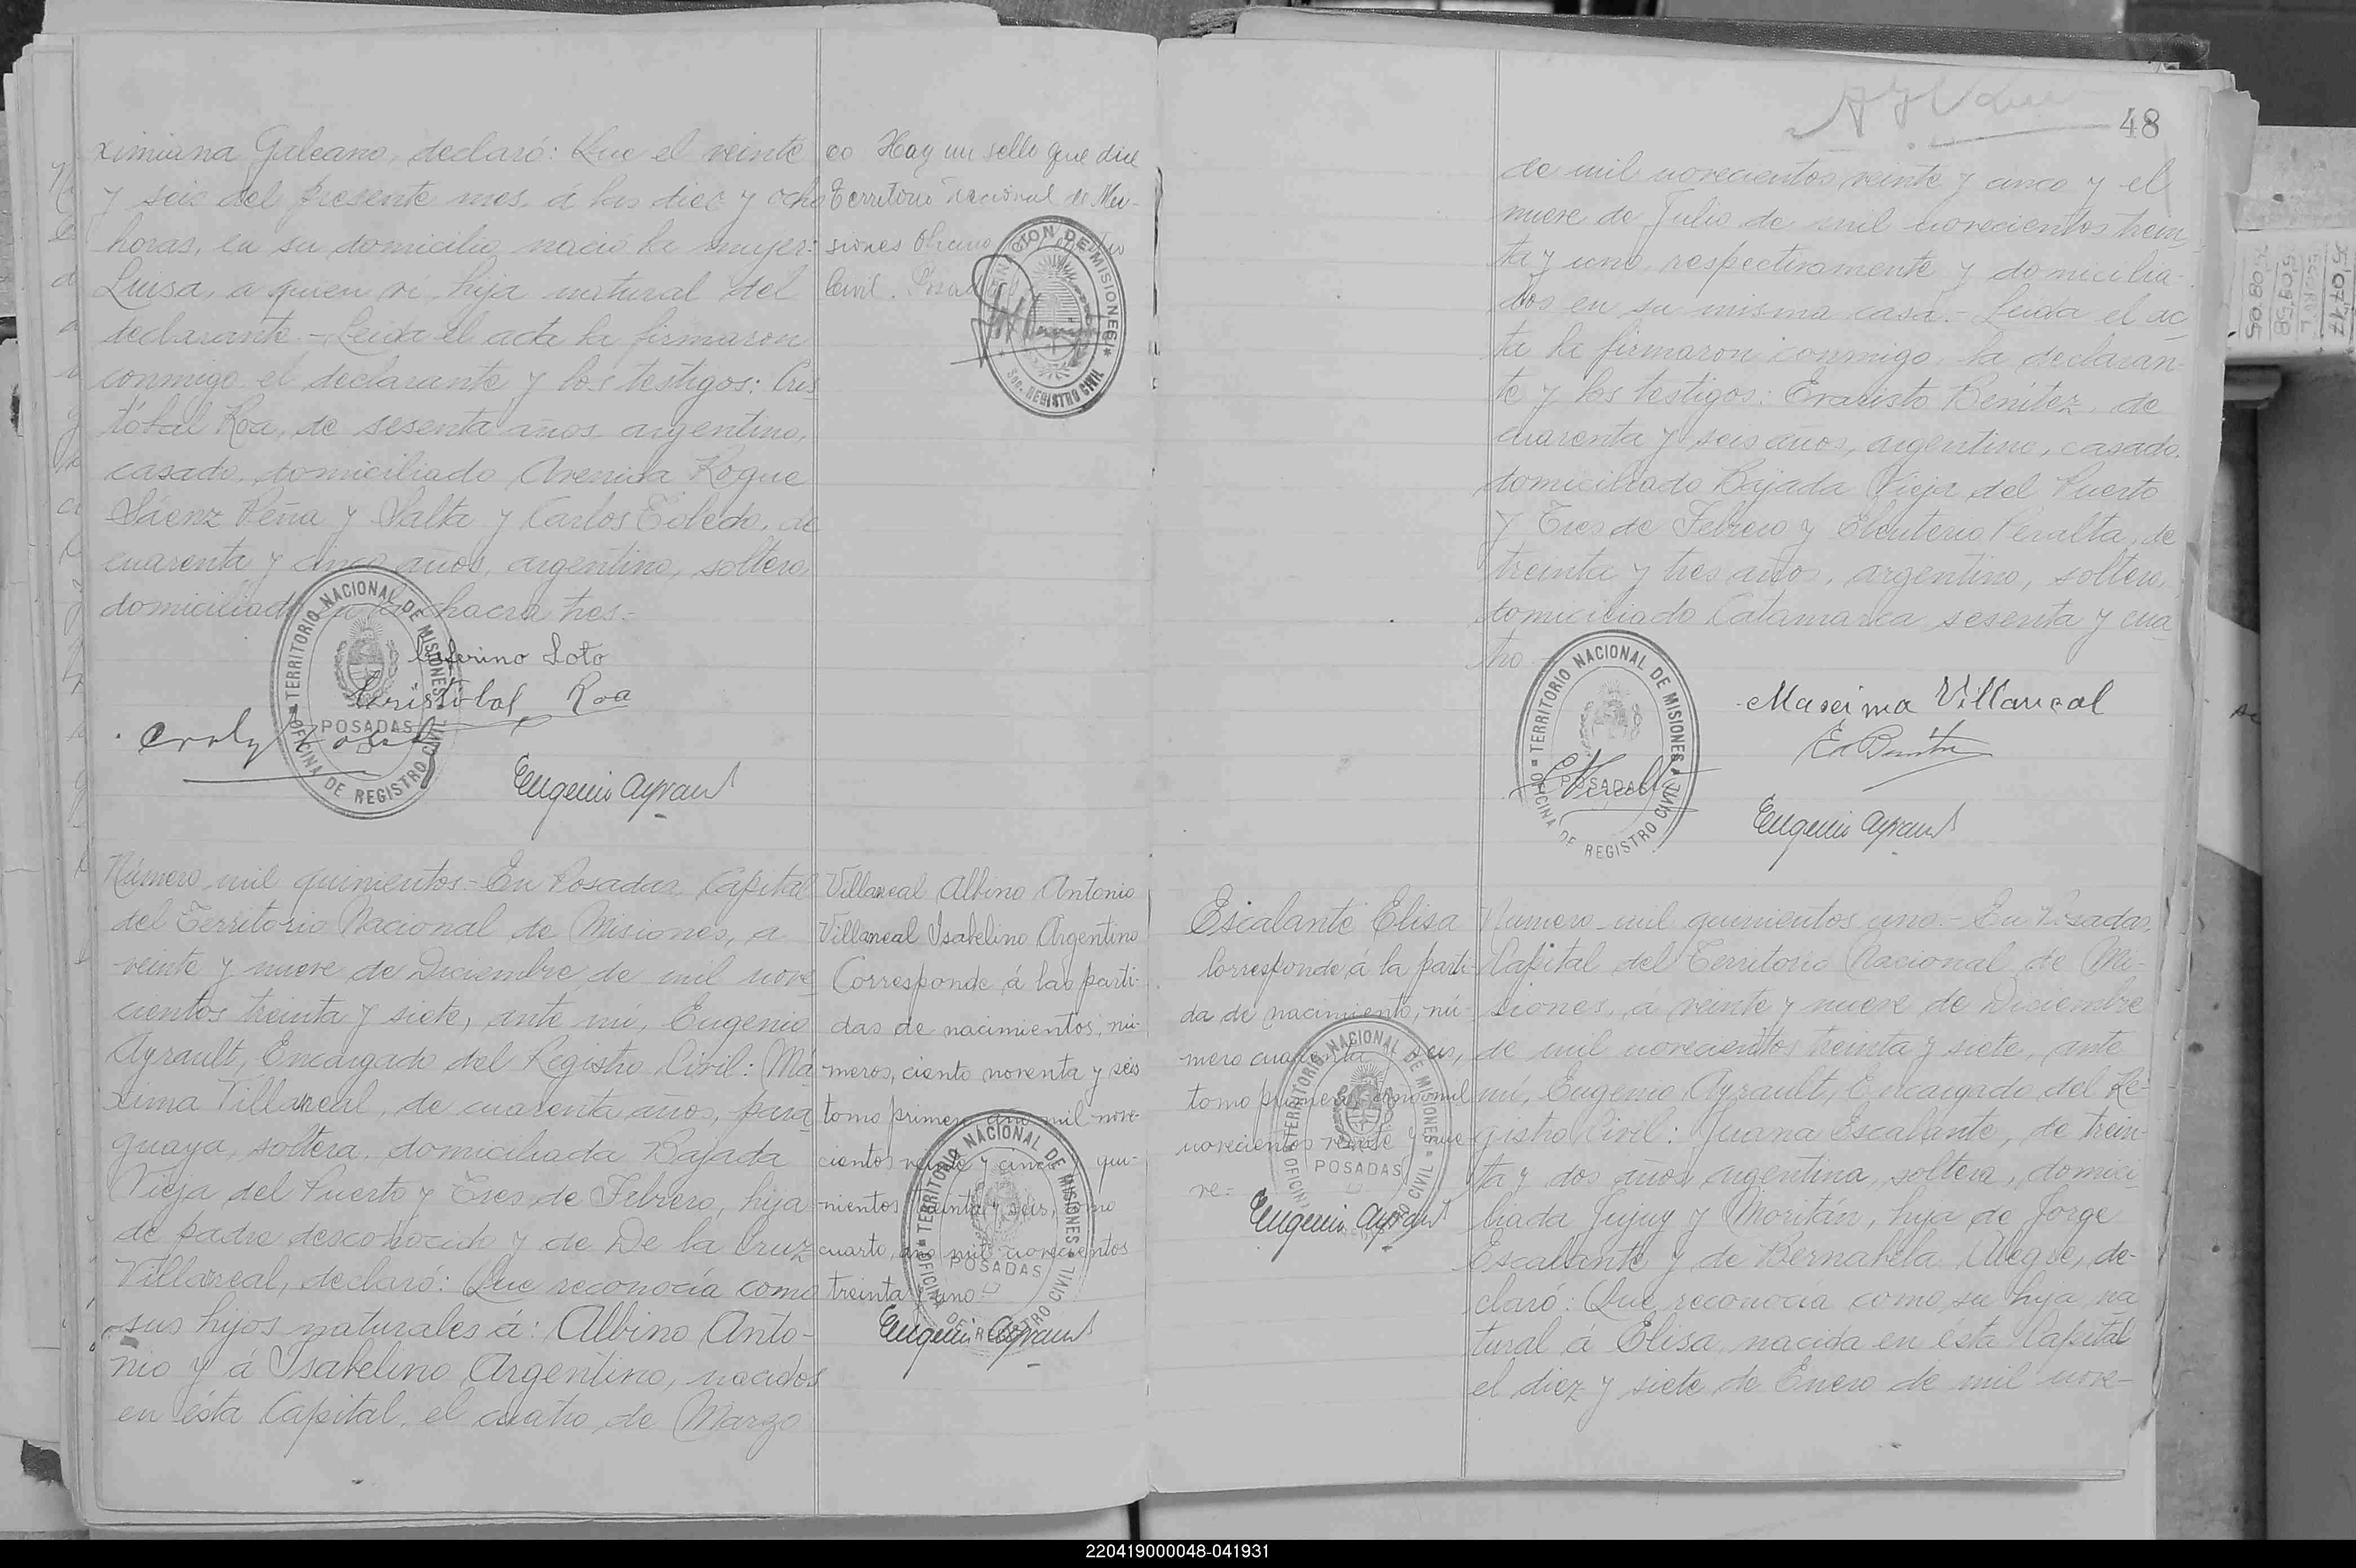 ximiana Galeano, declaró: Que el veinte
y seis del presente mes, á las diez y ocho
horas, en su domicilio nació la mujer:
Luisa, a quien ví, hija natural del
declarante.- Leida el acta la firmaron
conmigo el declarante y los testigos: Cris
tóbal Roa, de sesenta años, argentino,
casado, domiciliado Avenida Roque
Sáenz Peña y Salta y Carlos Toledo, de
cuarenta y cinco años, argentino, soltero,
domiciliado en la chacra tres.-
Ceferino Loto
Cristobal Roa
Eugenio Ayrault
TERRITORIO NACIONAL DE MISIONES
POSADAS
OFICINA DE REGISTRO CIVIL
co Hay un sello que dice
Territorio Nacional de Mi-
siones
Civil.
DE MISIONES
Sec. REGISTRO CIVIL
Número mil quinientos.- En Posadas, Capital
del Territorio Nacional de Misiones, a
veinte y nueve de Diciembre de mil nove
cientos treinta y siete, ante mí, Eugenio
Ayrault, Encargado del Registro Civil: Má
xima Villareal, de cuarenta años, para
guaya, soltera, domiciliada Bajada
Vieja del Puerto y Tres de Febrero, hija
de padre desconocido y de De la Cruz
Villareal, declaró: Que reconocía como
sus hijos naturales á: Albino Anto-
nio y á Isabelino Argentino, nacidos
en ésta Capital, el cuatro de Marzo
Villareal Albino Antonio
Villareal Isabelino Argentino
Corresponde á las parti-
das de nacimientos, nú-
meros, ciento noventa y seis
tomo primero, año mil nove-
cientos veinte y cinco y qui-
nientos treinta y seis, tomo
cuarto, año mil novecientos
treinta y uno.-
Eugenio Ayrault
TERRITORIO NACIONAL DE MISIONES
POSADAS
OFICINA DE REGISTRO CIVIL
48
de mil novecientos veinte y cinco y el
nueve de Julio de mil novecientos trein
ta y uno, respectivamente y domicilia-
dos en su misma casa.- Leida el ac
ta la firmaron conmigo, la declaran-
te y los testigos: Evaristo Benítez, de
cuarenta y seis años, argentino, casado,
domiciliado Bajada Vieja del Puerto
y Tres de Febrero y Eleuterio Peralta, de
treinta y tres años, argentino, soltero,
domiciliado Catamarca sesenta y cua
tro.-
Maxima Villareal
Eugenio Ayrault
TERRITORIO NACIONAL DE MISIONES
POSADAS
OFICINA DE REGISTRO CIVIL
Escalante Elisa
Corresponde á la parti-
da de nacimiento, nú-
mero cuarenta y seis,
tomo primero, año mil
novecientos veinte y nue
ve.=
Eugenio Ayrault
TERRITORIO NACIONAL DE MISIONES
POSADAS
Número mil quinientos uno.- En Posadas,
Capital del Territorio Nacional de Mi-
siones, á veinte y nueve de Diciembre
de mil novecientos treinta y siete, ante
mí, Eugenio Ayrault, Encargado del Re-
gistro Civil: Juana Escalante, de trein-
ta y dos años, argentina, soltera, domici
liada Jujuy y Moritán, hija de Jorge
Escalante y de Bernabela Alegre, de-
claró: Que reconocía como su hija na
tural á Elisa, nacida en ésta Capital
el diez y siete de Enero de mil nove-
220419000048-041931